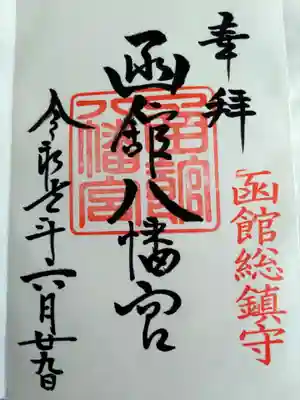 奉拝
函館総鎮守
函館八幡宮
函館八幡宮
令和七年六月廿九日